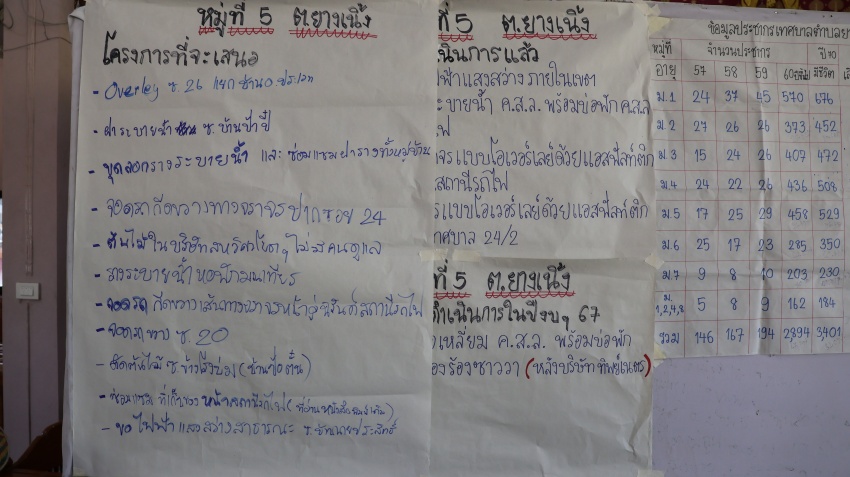 หมู่ที่ 5 ต.ยางเนิ้ง
โครงการที่จะเสนอ
- Overley ซ.26 แยก
- ฝาระบายน้ำ ซ.บ้านป้าปี้
- ขุดลอกรางระบายน้ำ และ ซ่อมแซมฝารางทั้งหมู่บ้าน
- จอดรถกีดขวางทางจราจรปากซอย 24
- ต้นไม้ในบริษัท ไม่มีคนดูแล
- รางระบายน้ำหอพัก
- จอดรถ กีดขวางเส้นทางจราจรหน้า สถานีรถไฟ
- จอดรถขวาง ซ.20
- ตัดต้นไม้ ซ.
- ซ่อมแซม หน้าสถานีรถไฟ
- ขอไฟฟ้าแสงสว่างสาธารณะ ซ.บ้านนายประสิทธิ์
ที่ 5 ต.ยางเนิ้ง
เนินการแล้ว
ฟ้าแสงสว่าง ภายในเขต
ะบายน้ำ ค.ส.ล. พร้อมบ่อพัก ค.ส.ล
ฟ
จรแบบโอเวอร์เลย์ด้วยแอสฟัลท์ติก
สถานีรถไฟ
รแบบโอเวอร์เลย์ด้วยแอสฟัลท์ติก
ทศบาล 24/2
ที่ 5 ต.ยางเนิ้ง
ดำเนินการในปีงบฯ 67
เหลี่ยม ค.ส.ล. พร้อมบ่อพัก
องร้องซาววา (หลังบริษัท ทิพย์เนตร)
ข้อมูลประชากรเทศบาลตำบลยา
หมู่ที่ จำนวนประชากร ปี 70
อายุ 57 58 59 60 มีชีวิต
ม.1 24 37 45 570 676
ม.2 27 26 26 373 452
ม.3 15 24 26 407 472
ม.4 24 22 26 436 508
ม.5 17 25 29 458 529
ม.6 25 17 23 285 350
ม.7 9 8 10 203 230
ม.1,2,4,8 5 8 9 162 184
รวม 146 167 194 2,894 3,401